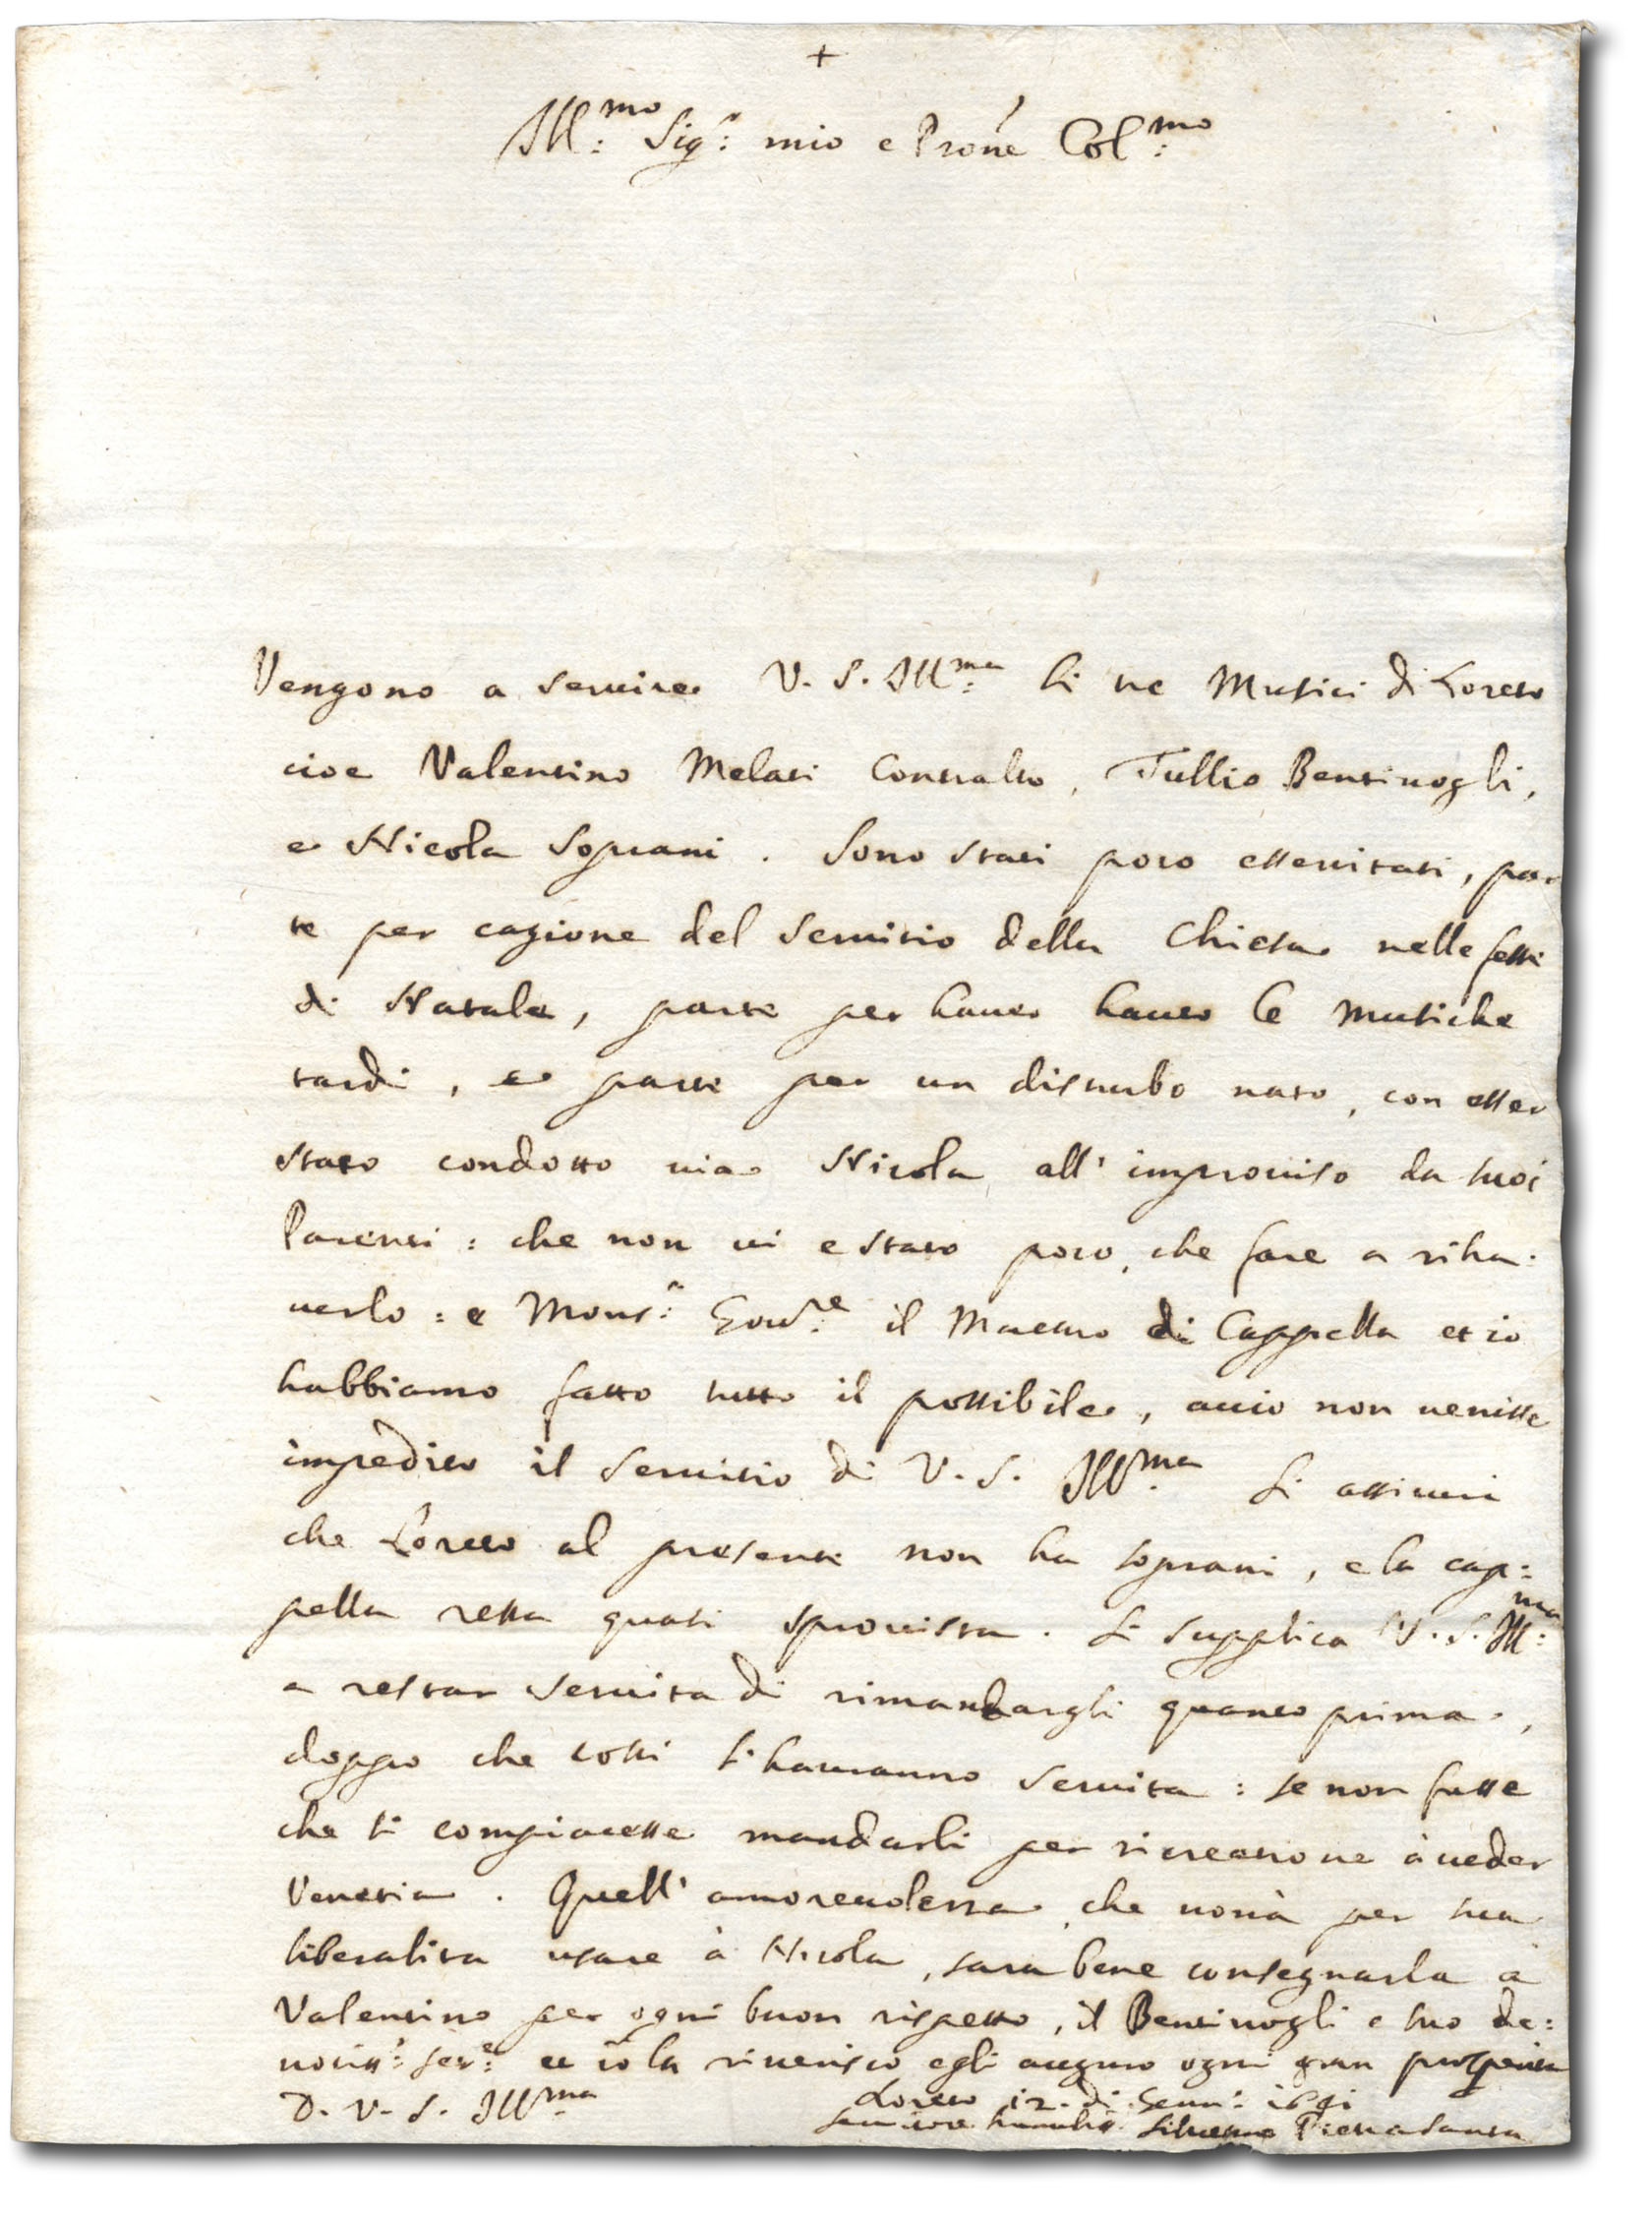 +
Ill:mo Sig:r mio e Prone Col:mo
Vengono a seruire V. S. Ill:ma li tre Musici di Loreto
cioe Valentino Melati Contralto, Tullio Bentiuogli,
e Nicola Soprani. Sono stati poco essercitati, par
te per cagione del seruitio della Chiesa nelle feste
di Natale, parte per hauer hauto le musiche
tardi, e parte per un disturbo nato, con esser
stato condotto uia Nicola all' improuiso da suoi
Parenti: che non ui e stato poco, che fare a riha-
uerlo: e Mons:r Gou:re il Maestro di Cappella et io
habbiamo fatto tutto il possibile, accio non uenisse
impedito il seruitio di V. S. Ill:ma Si assicuri
che Loreto al presente non ha soprani, e la cap:
pella resta quasi sprouista. Si supplica V. S. Ill:ma
a restar seruita di rimandargli quanto prima,
doppo che costi l'haueranno seruita: se non fusse
che si compiacesse mandarli per ricreatione à ueder
Venetia. Quell' amoreuolezza che uorrà per sua
liberalita usare à Nicola, sara bene consegnarla à
Valentino per ogni buon rispetto, il Bentiuogli e suo de:
uotiss:o ser:e et io la riuerisco e gli auguro ogni gran prosperita
D. V. S. Ill:ma
Loreto 12. di Genn: 1641
seruitore humiliss Siluestro Pietrasanta